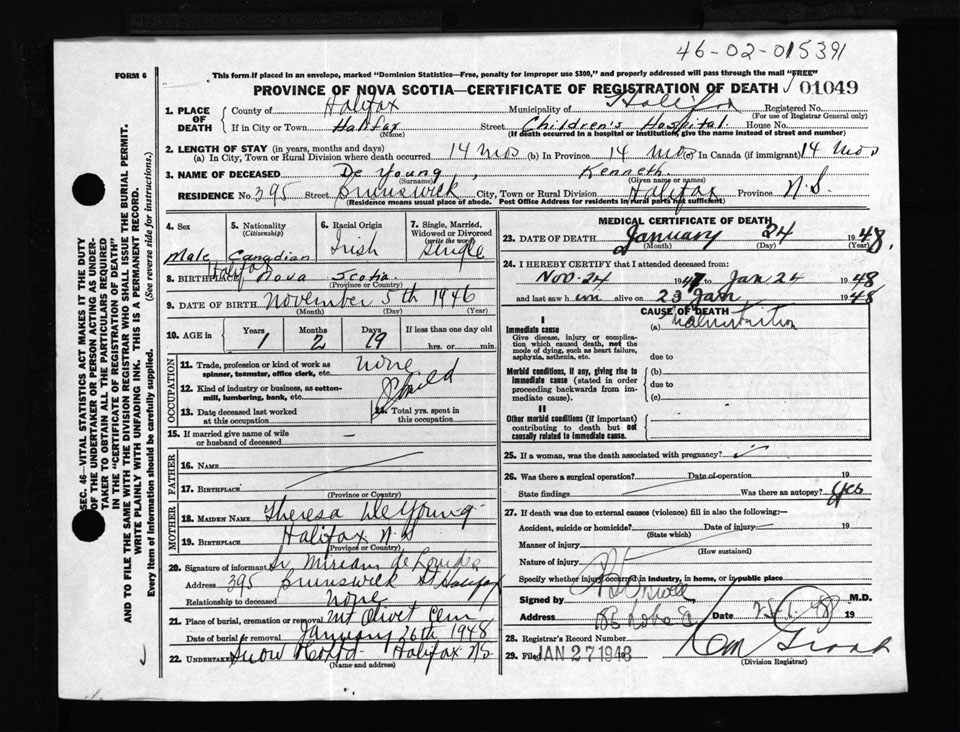 46-02-015391
FORM 6
This form if placed in an envelope, marked "Dominion Statistics—Free, penalty for improper use $300," and properly addressed will pass through the mail "FREE"
PROVINCE OF NOVA SCOTIA—CERTIFICATE OF REGISTRATION OF DEATH 01049
1. PLACE OF DEATH
County of Halifax Municipality of Halifax Registered No.
(For use of Registrar General only)
If in City or Town Halifax Street Children's Hospital House No.
(Name) (If death occurred in a hospital or institution, give the name instead of street and number)
2. LENGTH OF STAY (in years, months and days)
(a) In City, Town or Rural Division where death occurred 14 mos (b) In Province 14 mos (c) In Canada (if immigrant) 14 mos
3. NAME OF DECEASED De Young, Kenneth.
(Surname) (Given name or names)
RESIDENCE No. 395 Street Brunswick City, Town or Rural Division Halifax Province N.S.
(Residence means usual place of abode. Post Office Address for residents in rural parts not sufficient)
4. Sex
Male
5. Nationality
(Citizenship)
Canadian
6. Racial Origin
Irish
7. Single, Married, Widowed or Divorced
(write the word)
Single
8. BIRTHPLACE Halifax Nova Scotia.
(Province or Country)
9. DATE OF BIRTH November 5th 1946
(Month) (Day) (Year)
10. AGE in Years Months Days If less than one day old
1 2 19 hrs. or min.
OCCUPATION
11. Trade, profession or kind of work as none
spinner, teamster, office clerk, etc.
12. Kind of industry or business, as cotton-
mill, lumbering, bank, etc. Child
13. Date deceased last worked
at this occupation
14. Total yrs. spent in
this occupation
15. If married give name of wife
or husband of deceased —
FATHER
16. Name
17. Birthplace
(Province or Country)
MOTHER
18. Maiden Name Theresa De Young
19. Birthplace Halifax N.S
(Province or Country)
20. Signature of informant Sr. Miriam de Lourdes
Address 395 Brunswick St Halifax
Relationship to deceased none
21. Place of burial, cremation or removal Mt Olivet Cem
Date of burial or removal January 26th 1948
22. Undertaker Snow Halifax N.S.
(Name and address)
MEDICAL CERTIFICATE OF DEATH
23. DATE OF DEATH January 24 1948.
(Month) (Day) (Year)
24. I HEREBY CERTIFY that I attended deceased from:
Nov-24 1947 to Jan 24 1948
and last saw him alive on 23 Jan 1948
CAUSE OF DEATH
I
Immediate cause
Give disease, injury or complica-
tion which caused death, not the
mode of dying, such as heart failure,
asphyxia, asthenia, etc.
(a) Malnutrition
due to
Morbid conditions, if any, giving rise to
immediate cause (stated in order
proceeding backwards from im-
mediate cause).
(b)
due to
(c)
II
Other morbid conditions (if important)
contributing to death but not
causally related to immediate cause.
25. If a woman, was the death associated with pregnancy?
26. Was there a surgical operation? Date of operation 19
State findings Was there an autopsy? Yes
27. If death was due to external causes (violence) fill in also the following:—
Accident, suicide or homicide? Date of injury 19
(State which)
Manner of injury
(How sustained)
Nature of injury
Specify whether injury occurred in industry, in home, or in public place
Signed by M.D.
Address Date 25.1.48 19
28. Registrar's Record Number
29. Filed JAN 27 1948 19
(Division Registrar)
SEC. 46—VITAL STATISTICS ACT MAKES IT THE DUTY
OF THE UNDERTAKER OR PERSON ACTING AS UNDER-
TAKER TO OBTAIN ALL THE PARTICULARS REQUIRED
IN THE "CERTIFICATE OF REGISTRATION OF DEATH"
AND TO FILE THE SAME WITH THE DIVISION REGISTRAR WHO SHALL ISSUE THE BURIAL PERMIT.
WRITE PLAINLY WITH UNFADING INK. THIS IS A PERMANENT RECORD.
Every item of information should be carefully supplied. (See reverse side for instructions.)